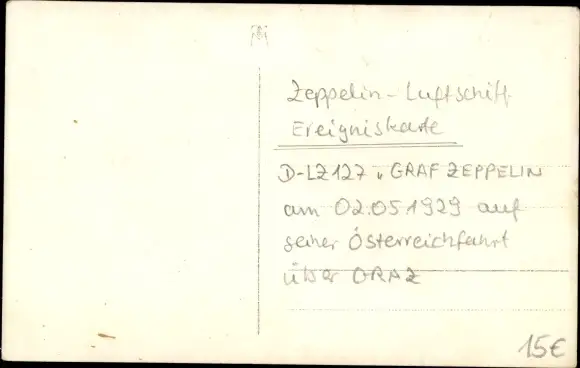 Zeppelin-Luftschiff
Ereigniskarte
D-LZ127 „GRAF ZEPPELIN
am 02.05.1929 auf
seiner Österreichfahrt
über GRAZ
15€